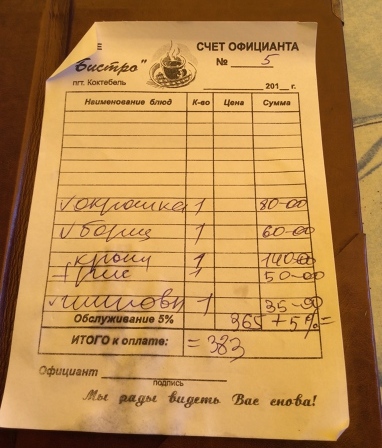 СЧЕТ ОФИЦИАНТА
"Бистро"
№ 5
пгт. Коктебель
201__ г.
Наименование блюд К-во Цена Сумма
окрошка 1 80-00
борщ 1 60-00
1 140-00
+ рис 1 50-00
1 35-00
Обслуживание 5% 365 + 5% =
ИТОГО к оплате: = 383
Официант
подпись
Мы рады видеть Вас снова!